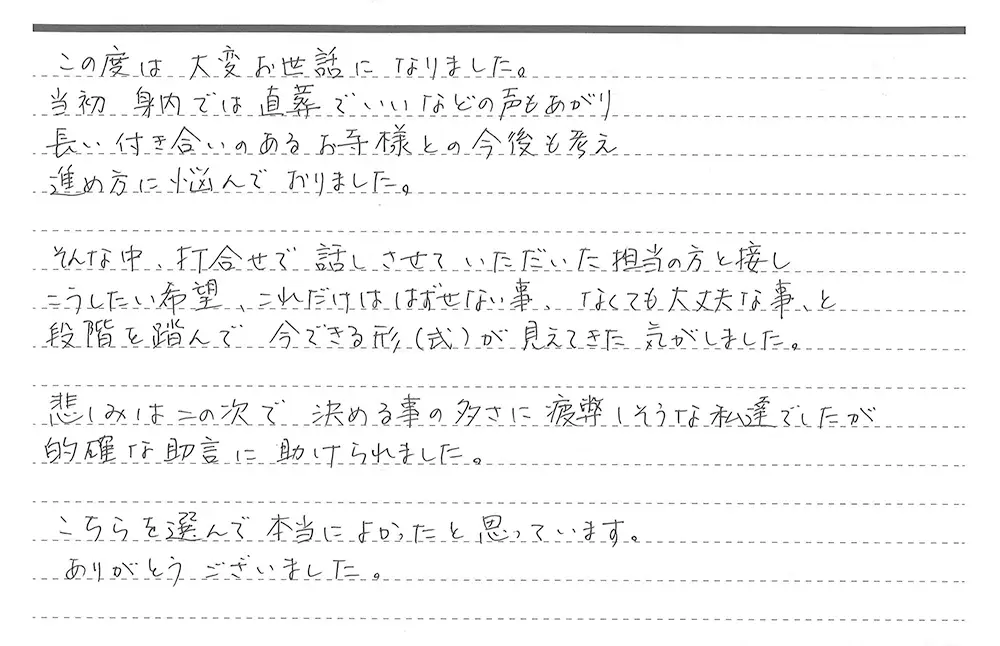 この度は 大変お世話に なりました。
当初 身内では直葬でいいなどの声もあがり
長い付き合いのあるお寺様との今後も考え
進め方に悩んで おりました。
そんな中、打合せで 話しさせて いただいた担当の方と接し
こうしたい希望、これだけははずせない事、なくても大丈夫な事、と
段階を踏んで 今できる形(式)が見えてきた 気がしました。
悲しみは二の次で 決める事の多さに 疲弊しそうな私達でしたが
的確な助言に 助けられました。
こちらを選んで 本当によかったと思っています。
ありがとう ございました。